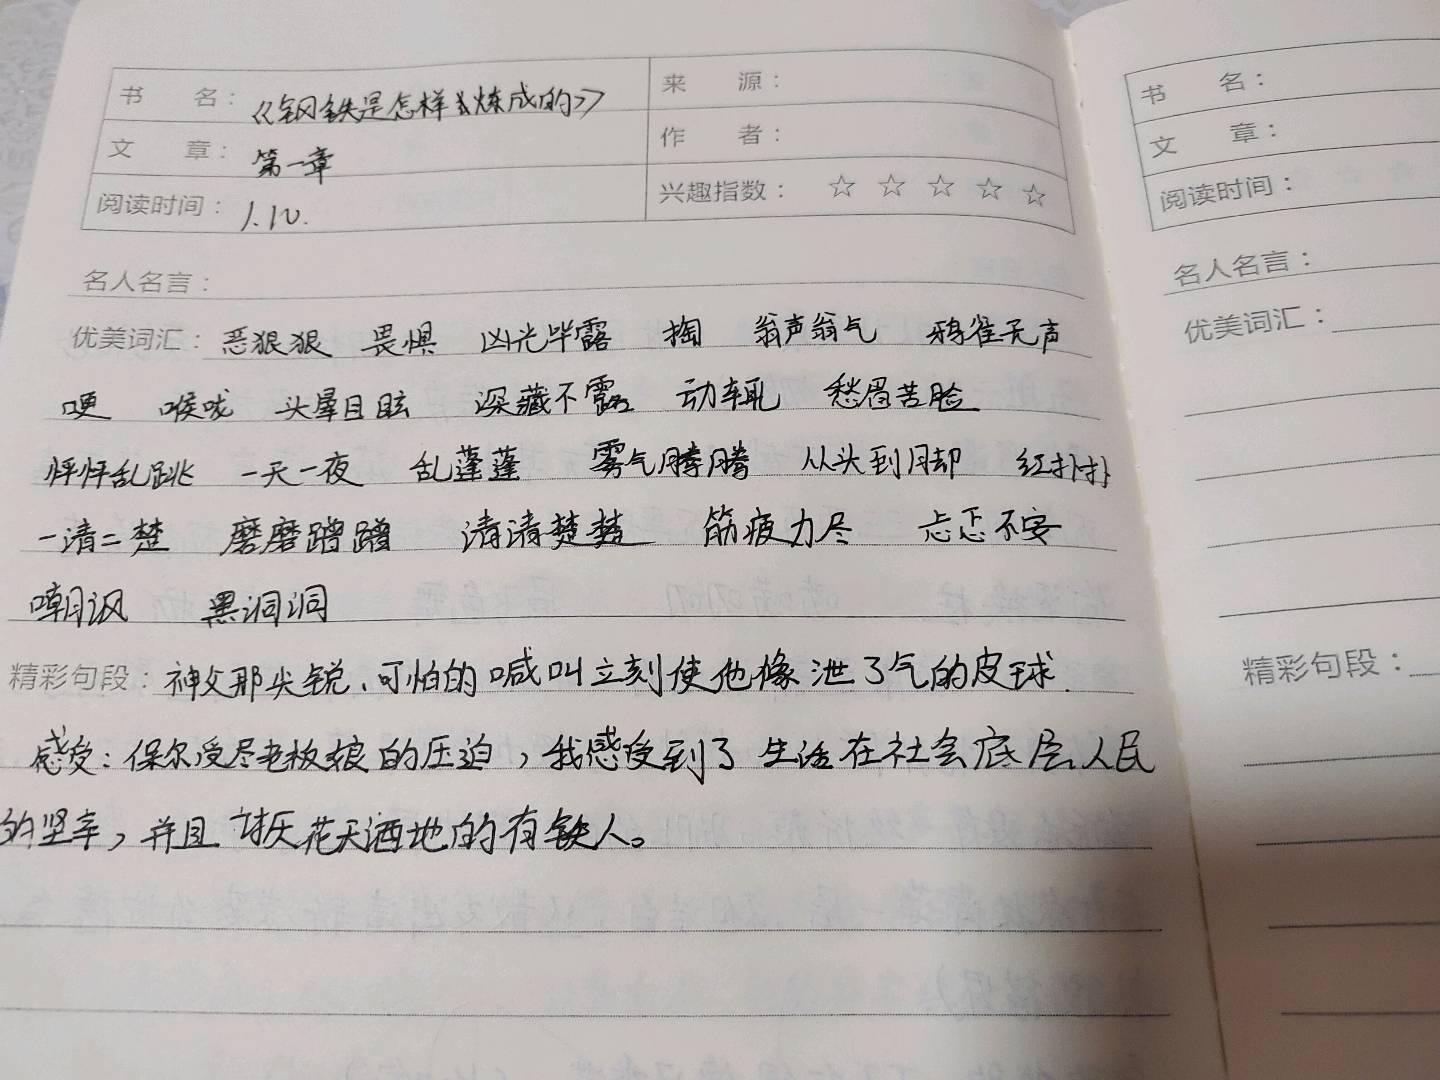 书 名： 《钢铁是怎样炼成的》
来 源：
文 章： 第一章
作 者：
阅读时间： 1.10.
兴趣指数： ☆ ☆ ☆ ☆ ☆
名人名言：
优美词汇： 恶狠狠 畏惧 凶光毕露 掏 翁声翁气 鸦雀无声
哽 喉咙 头晕目眩 深藏不露 动辄 愁眉苦脸
怦怦乱跳 一天一夜 乱蓬蓬 雾气腾腾 从头到脚 红扑扑
一清二楚 磨磨蹭蹭 清清楚楚 筋疲力尽 忐忑不安
嘲讽 黑洞洞
精彩句段： 神父那尖锐、可怕的喊叫立刻使他像泄了气的皮球.
感受：保尔受尽老板娘的压迫，我感受到了生活在社会底层人民
的坚辛，并且讨厌花天酒地的有铁人。
书 名：
文 章：
阅读时间：
名人名言：
优美词汇：
精彩句段：